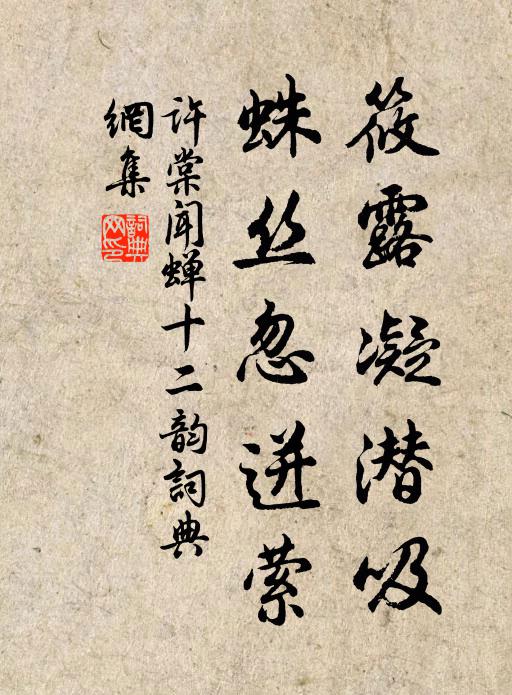 筱露凝潜吸
蛛丝忽迸萦
许棠闻蝉十二韵詞典
網集
詞典网印